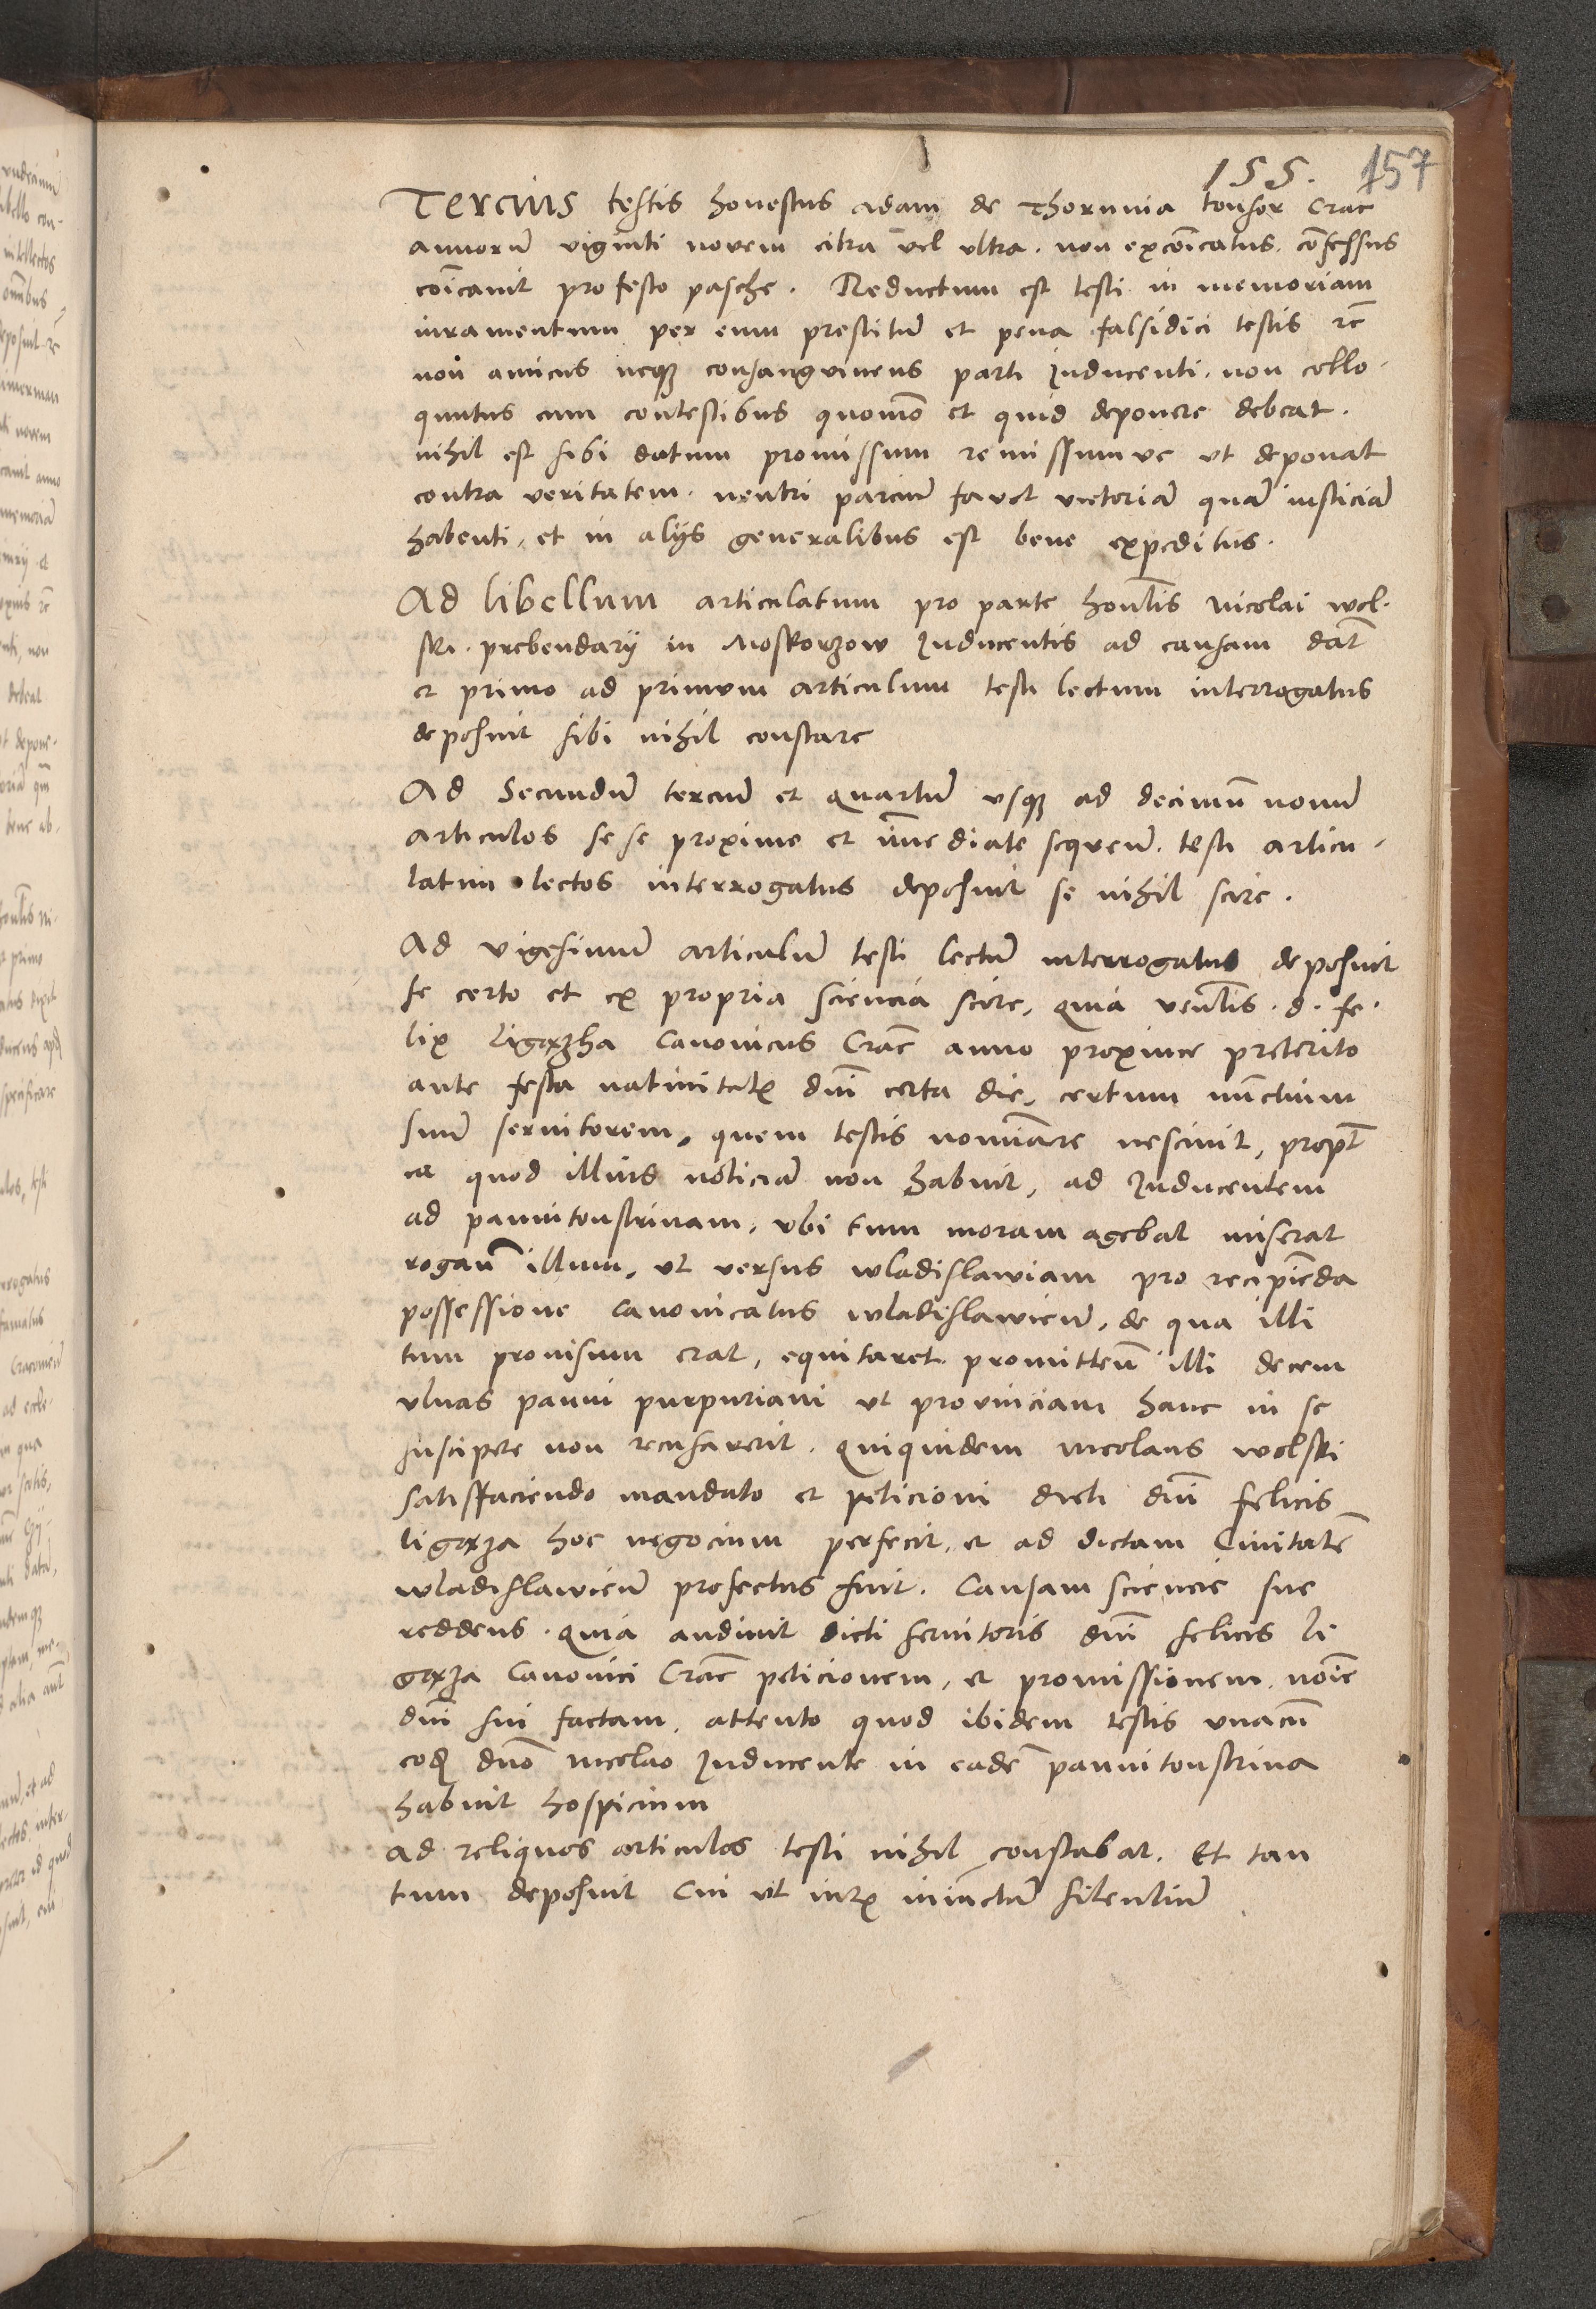 155. 157
Tercius testis honestus Adam de Thorunia tonsor Crac
annorū viginti novem citra vel ultra. non excōicatus. cōfessus
cōicavit pro festo pasche. Reductum est testi in memoriam
iuramentum per eum prestitū et pena falsidici testis rc̄
non amicus neqȝ consangvineus parti Inducenti. non collo-
quutus cum contestibus quomō et quid deponere debeat.
nihil est sibi datum promissum remissumve ut deponat
contra veritatem. neutri parciū favet victoriā quā iusticiā
habenti, et in alijs generalibus est bene expeditus.
Ad libellum articulatum pro parte honl̄is Nicolai wol-
ski. prebendarij in Moskorzow Inducentis ad causam dat̄
et primo ad primum articulum testi lectum interrogatus
deposuit sibi nihil constare
Ad Secundū terciū et quartū usqȝ ad decimū nonū
articulos se se proxime et im̄ediate sequeñ. testi articu-
latim lectos interrogatus deposuit se nihil scire.
Ad vigesimū articulū testi lectū interrogatus deposuit
se certo et ex propria sciencia scire, quia venl̄is. d. fe-
lix Ligązha Canonicus Crac̄ anno proxime preterito
ante festa nativitatꝭ dn̄i certa die, certum nūctium
suū servitorem, quem testis nomīare nescivit, propt̄
ea quod illius noticiā non habuit, ad Inducentem
ad pannitonstrinam, ubi tum moram agebat miserat
rogañ illum, ut versus wladislawiam pro recipiēda
possessione Canonicatus wladislawieñ, de qua illi
tum provisum erat, equitaret. promitteñ illi decem
ulnas panni purpuriani ut provinciam hanc in se
suscipere non recusarerit. Quiquidem Nicolaus wolski
satisffaciendo mandato et peticioni dicti dn̄i felicis
ligązа hoc negocium perfecit, et ad dictam Civitatē
wladislawieñ profectus fuit. Causam sciencie sue
reddens. quia audivit dicti servitoris dn̄i felicis Li
gązа Canonici Crac̄ peticionem, et promissionem. noīe
dn̄i sui factam, attento quod ibidem testis unacū
eod dn̄o Nicolao Inducente in eadē pannitonstrina
habuit hospicium
Ad reliquos articulos testi nihil constabat. Et tan
tum deposuit Cui ut intꝭ iniunctū silentiū